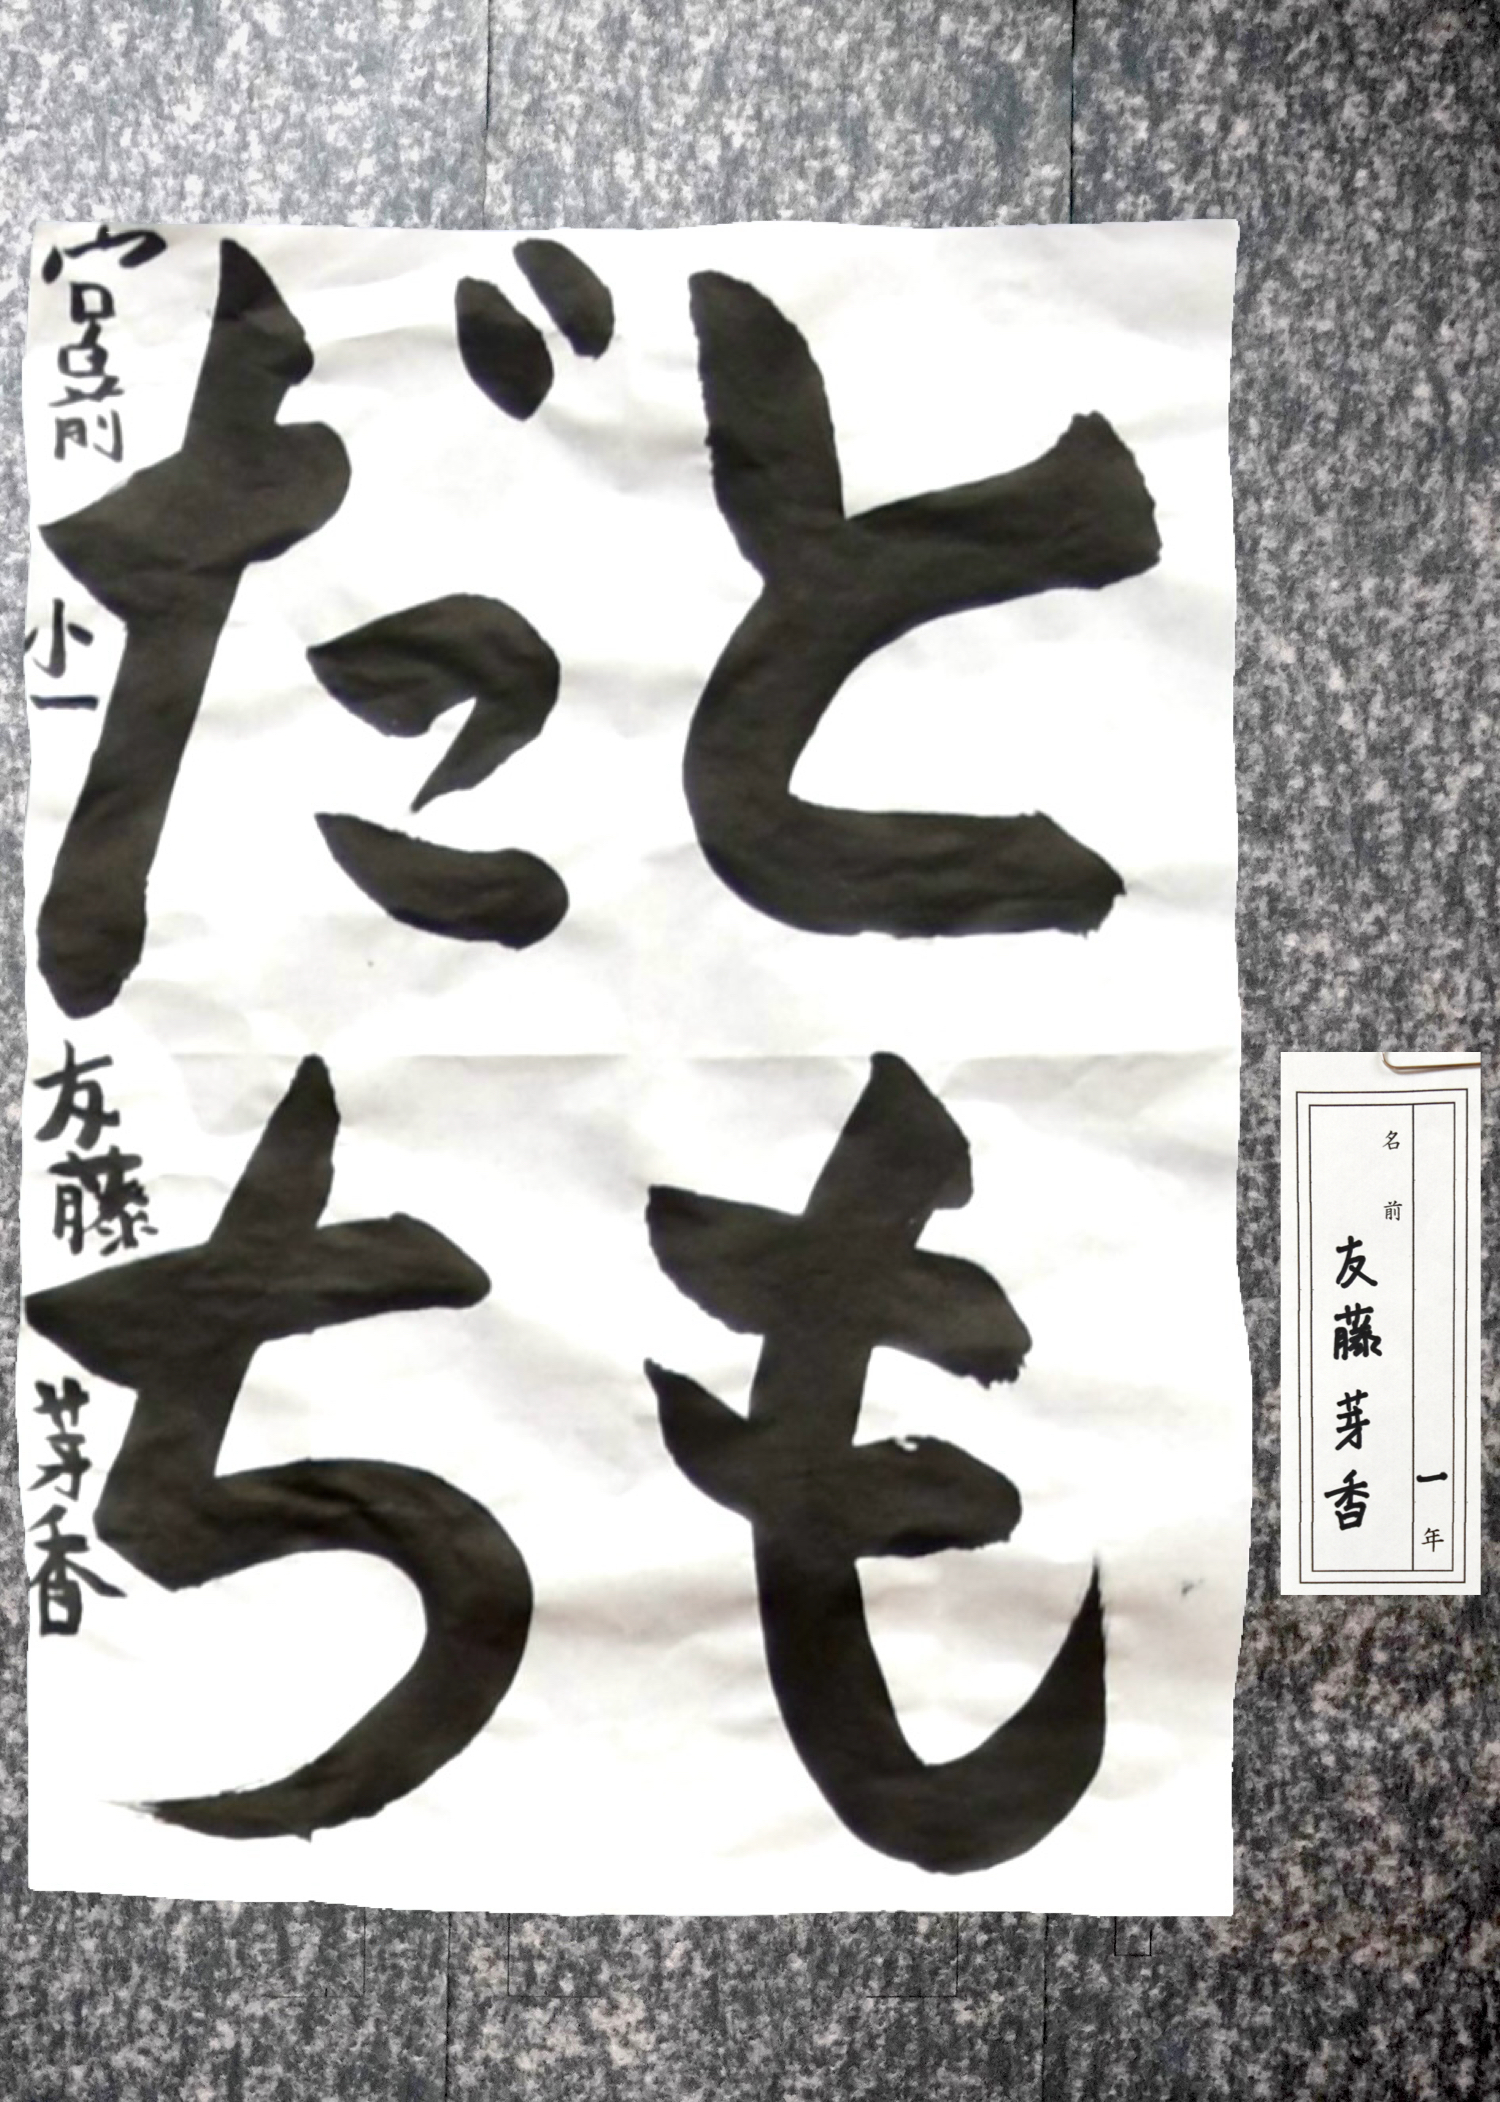 とも
だち
宮前 小一 友藤 芽香
一年
名前
友藤芽香